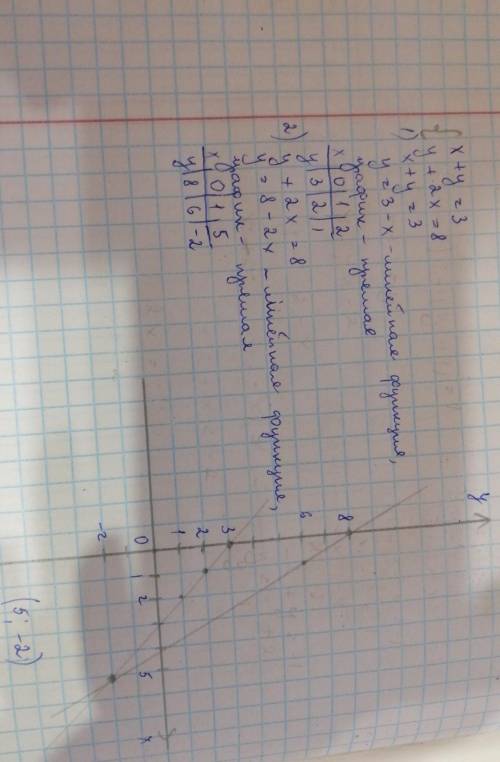 { x + y = 3
y + 2x = 8
1) x + y = 3
y = 3 - x - линейная функция,
график - прямая
x | 0 | 1 | 2
y | 3 | 2 | 1
2) y + 2x = 8
y = 8 - 2x - линейная функция,
график - прямая
x | 0 | 1 | 5
y | 8 | 6 | -2
y
8
6
3
2
1
0
1
2
5
x
-2
(5; -2)